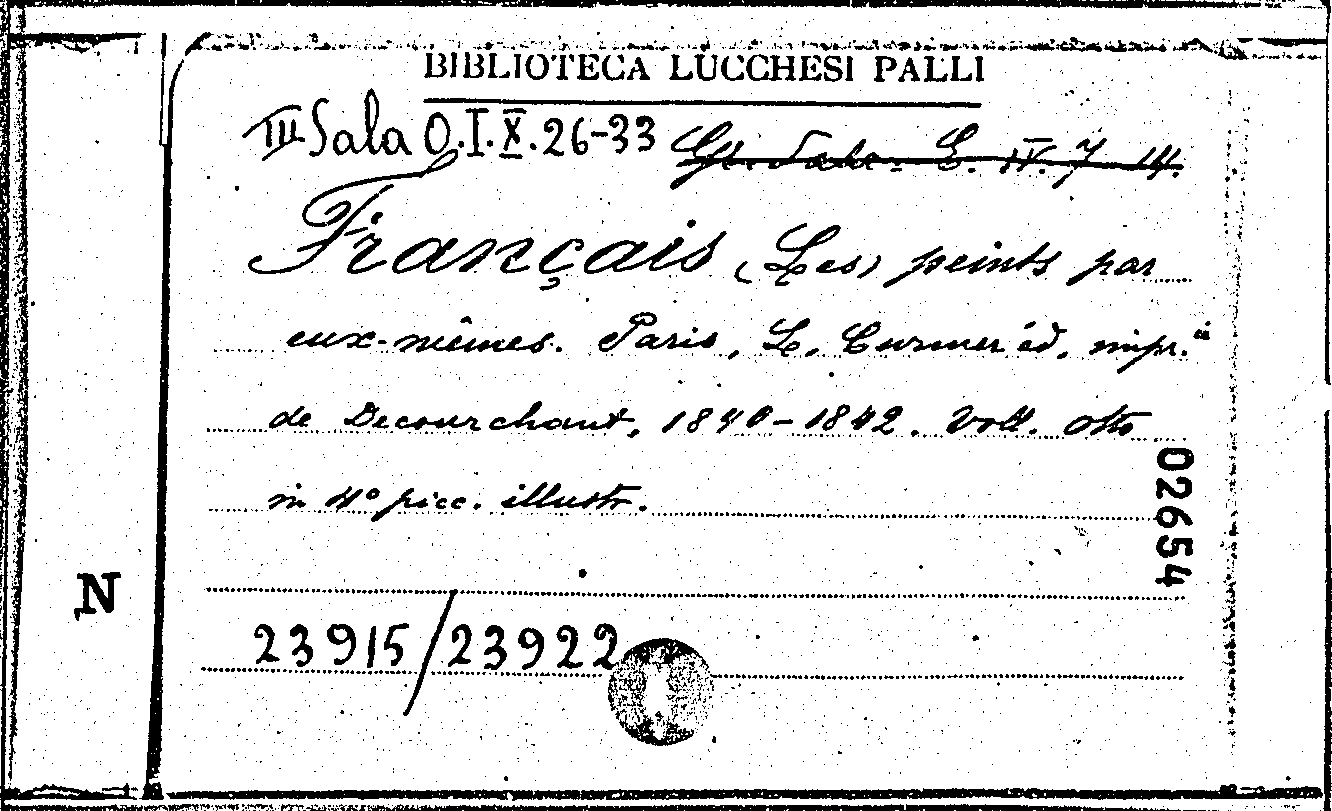 BIBLIOTECA LUCCHESI PALLI
III Sala O.I.X.26-33 Gr. Sala. E. IV. 7 14.
Français (Les) peints par
eux-mêmes. Paris, L. Curmer éd, impr.ie
de Decourchant, 1840-1842. Voll. otto
in 4° picc. illustr.
02654
N
23915/23922